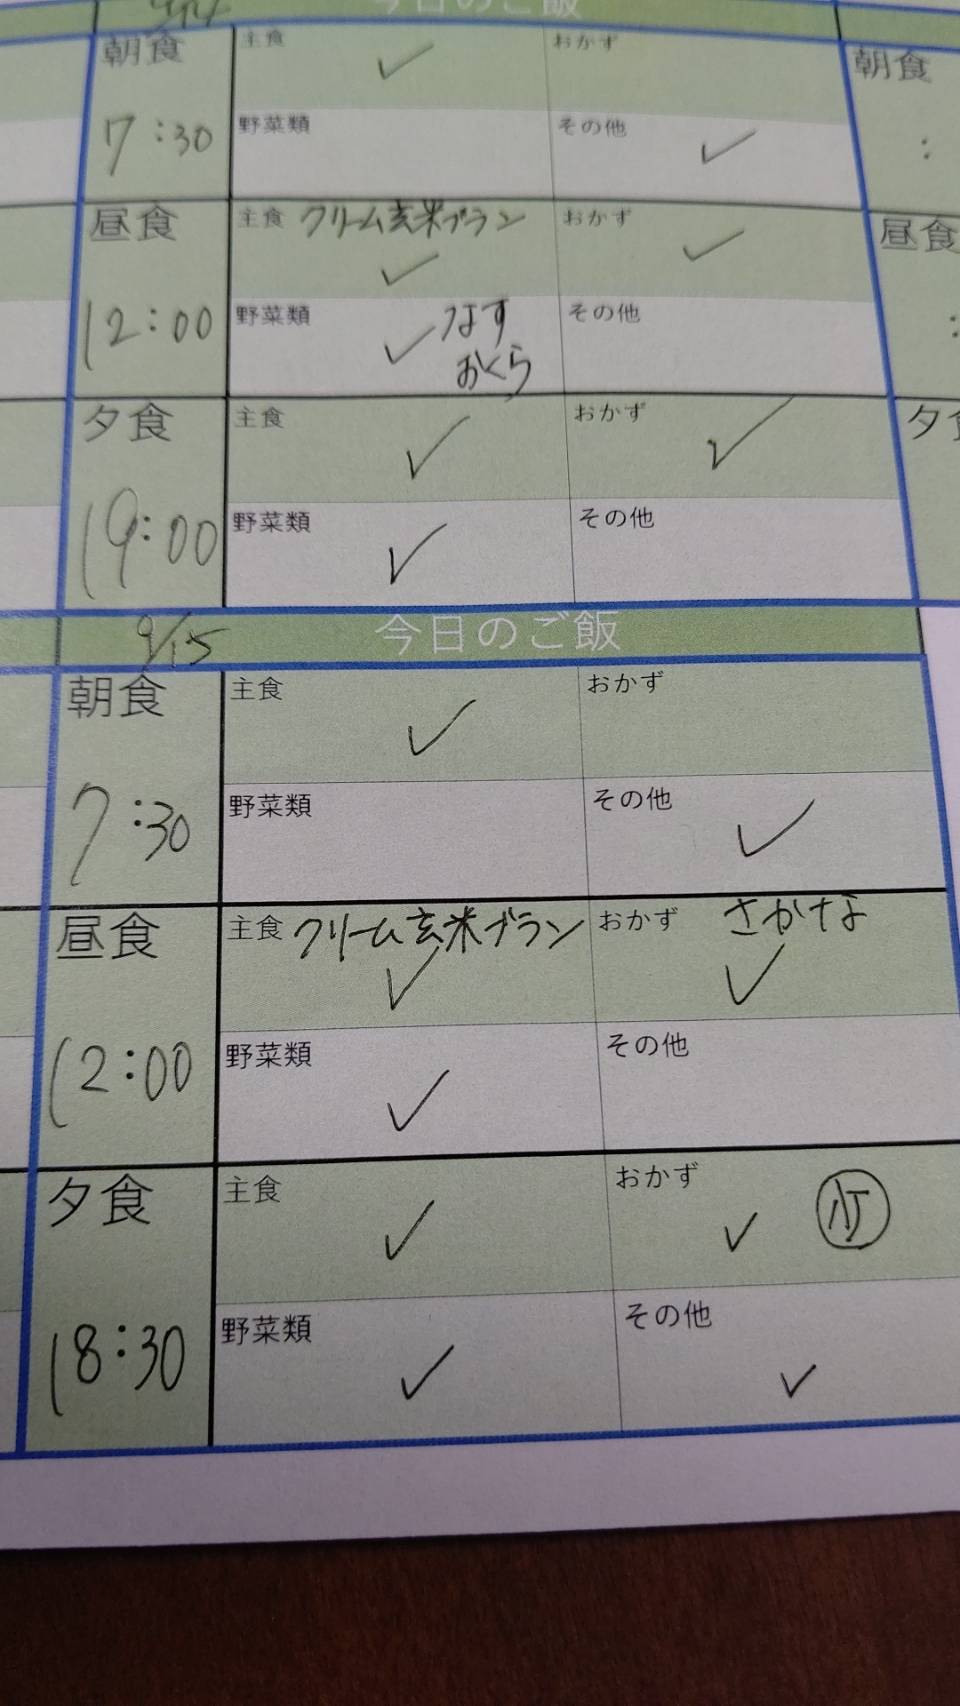 9/14 今日のご飯
朝食 主食 ✓ おかず 朝食
7:30 野菜類 その他 ✓ :
昼食 主食 クリーム玄米ブラン ✓ おかず ✓ 昼食
12:00 野菜類 ✓ なす その他 :
おくら
夕食 主食 ✓ おかず ✓ 夕
19:00 野菜類 ✓ その他
9/15 今日のご飯
朝食 主食 ✓ おかず
7:30 野菜類 その他 ✓
昼食 主食 クリーム玄米ブラン ✓ おかず さかな ✓
12:00 野菜類 ✓ その他
夕食 主食 ✓ おかず ✓
18:30 野菜類 ✓ その他 ✓